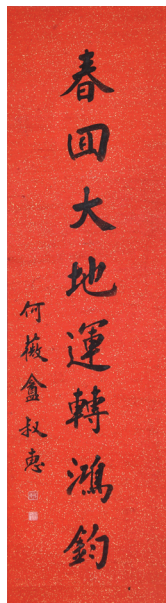 春回大地運轉鴻鈞
何薇盦叔惠